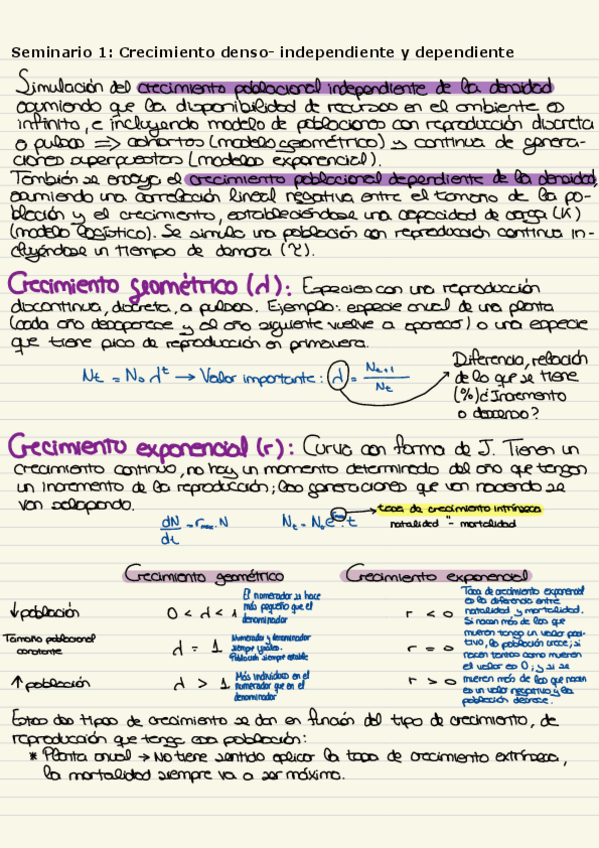 Seminario 1: Crecimiento denso- independiente y dependiente
Simulación del crecimiento poblacional independiente de la densidad
asumiendo que la disponibilidad de recursos en el ambiente es
infinito, e incluyendo modelo de poblaciones con reproducción discreta
o pulsos => cohortes (modelo geométrico) y continua de genera-
ciones superpuestas (modelos exponencial).
También se ensaya el crecimiento poblacional dependiente de la densidad,
asumiendo una correlación lineal negativa entre el tamaño de la po-
blación y el crecimiento, estableciéndose una capacidad de carga (K)
(modelo logístico). Se simula una población con reproducción continua in-
cluyéndose un tiempo de demora (τ).
Crecimiento geométrico (λ): Especies con una reproducción
discontinua, discreta, a pulsos. Ejemplo: especie anual de una planta
(cada año desaparece y al año siguiente vuelve a aparecer) o una especie
que tiene pico de reproducción en primavera.
Nt = N₀ λ^t → Valor importante: λ = Nt+1 / Nt
Diferencia, relación
de lo que se tiene
(%) ¿Incremento
o descenso?
Crecimiento exponencial (r): Curva con forma de J. Tienen un
crecimiento continuo, no hay un momento determinado del año que tengan
un incremento de la reproducción; las generaciones que van naciendo se
van solapando.
dN/dt = r max. N
→ tasa de crecimiento intrínseca
natalidad - mortalidad
Crecimiento geométrico
Crecimiento exponencial
↓ población
0 < λ < 1
El numerador se hace
más pequeño que el
denominador
r < 0
Tamaño poblacional
constante
λ = 1
Numerador y denominador
siempre iguales.
Población siempre estable
r = 0
↑ población
λ > 1
Más individuos en el
numerador que en el
denominador
r > 0
Tasa de crecimiento exponencial
es la diferencia entre
natalidad y mortalidad.
Si nacen más de los que
mueren tengo un valor posi-
tivo, la población crece; si
nacen tantos como mueren
el valor es 0; y si se
mueren más de los que nacen
es un valor negativo y la
población decrece.
Estos dos tipos de crecimiento se dan en función del tipo de crecimiento, de
reproducción que tenga esa población:
* Planta anual → No tiene sentido aplicar la tasa de crecimiento extrínseca,
la mortalidad siempre va a ser máxima.